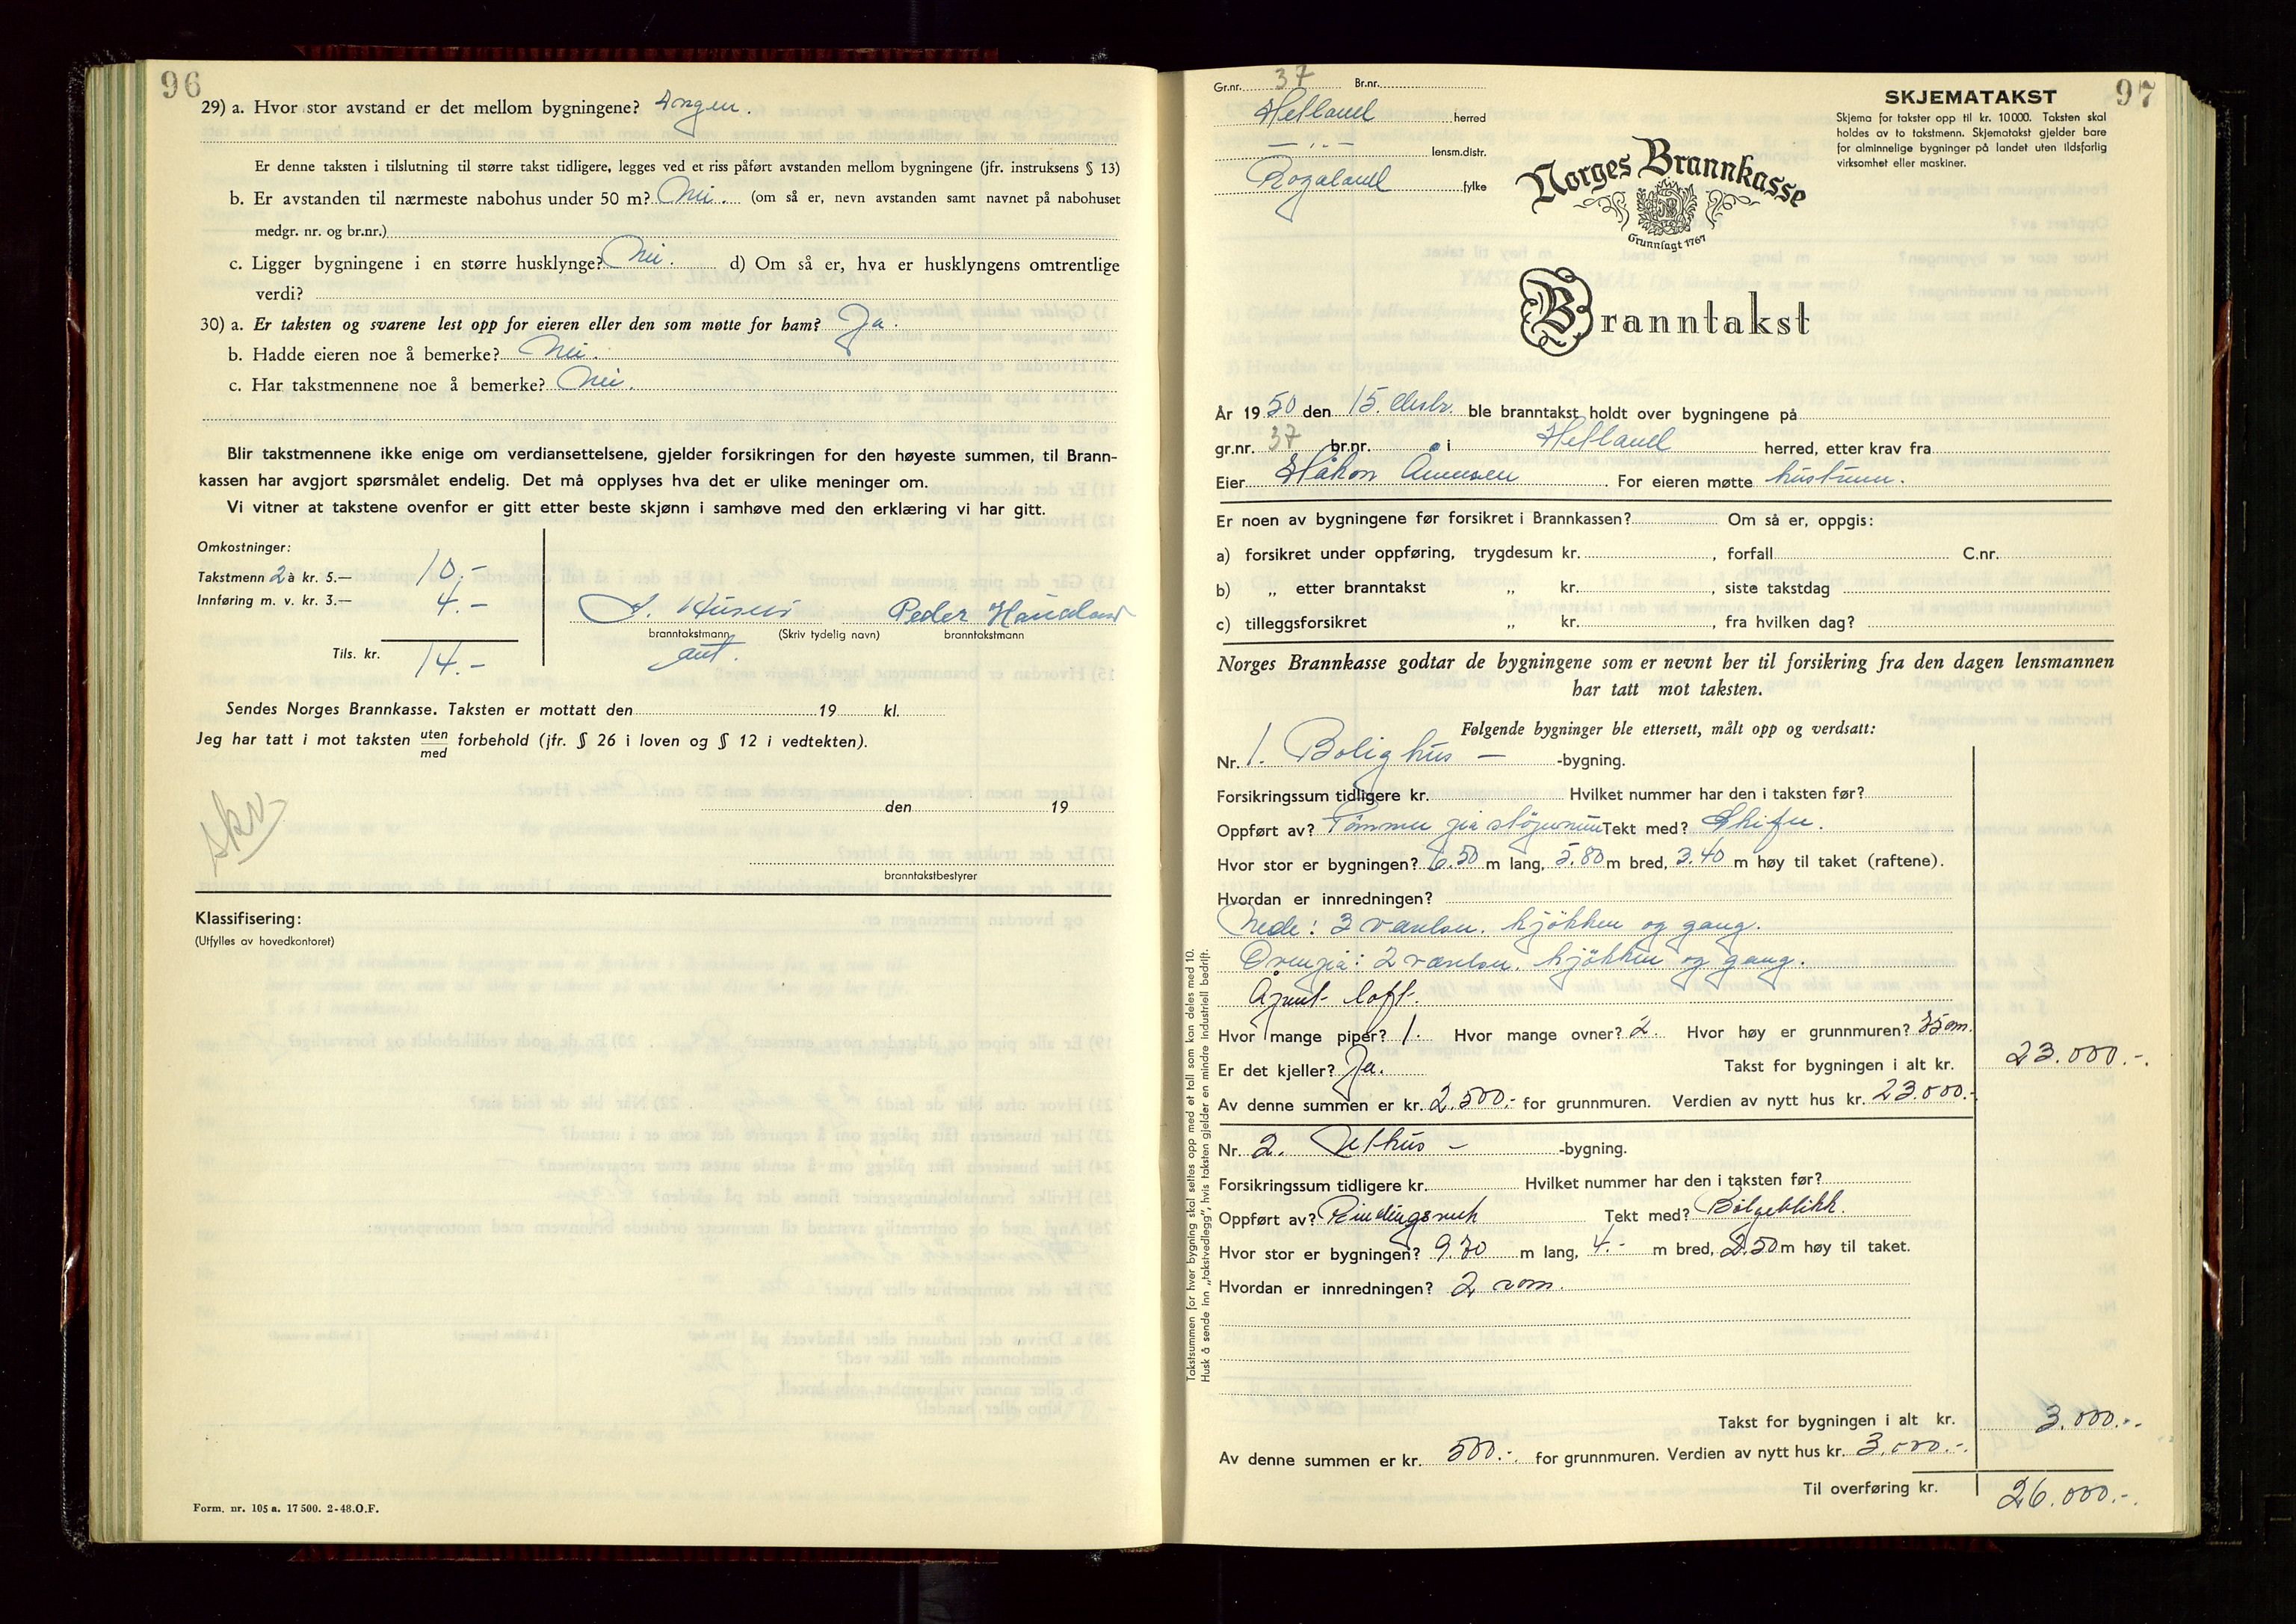 96
29) a. Hvor stor avstand er det mellom bygningene? Ingen.
Er denne taksten i tilslutning til større takst tidligere, legges ved et riss påført avstanden mellom bygningene (jfr. instruksens § 13)
b. Er avstanden til nærmeste nabohus under 50 m? Nei. (om så er, nevn avstanden samt navnet på nabohuset
medgr. nr. og br.nr.)
c. Ligger bygningene i en større husklynge? Nei. d) Om så er, hva er husklyngens omtrentlige
verdi?
30) a. Er taksten og svarene lest opp for eieren eller den som møtte for ham? Ja.
b. Hadde eieren noe å bemerke? Nei.
c. Har takstmennene noe å bemerke? Nei.
Blir takstmennene ikke enige om verdiansettelsene, gjelder forsikringen for den høyeste summen, til Brann-
kassen har avgjort spørsmålet endelig. Det må opplyses hva det er ulike meninger om.
Vi vitner at takstene ovenfor er gitt etter beste skjønn i samhøve med den erklæring vi har gitt.
Omkostninger:
Takstmenn 2 à kr. 5.— 10.-
Innføring m. v. kr. 3.— 4.-
Tils. kr. 14.-
Peder Haueland
branntakstmann (Skriv tydelig navn) branntakstmann
aut.
Sendes Norges Brannkasse. Taksten er mottatt den 19 kl.
Jeg har tatt i mot taksten uten
med forbehold (jfr. § 26 i loven og § 12 i vedtekten).
skv
den 19
branntakstbestyrer
Klassifisering:
(Utfylles av hovedkontoret)
Form. nr. 105 a. 17 500. 2-48. O.F.
97
Gr.nr. 37 Br.nr.
Hetland herred
— " — lensm.distr.
Rogaland fylke
SKJEMATAKST
Skjema for takster opp til kr. 10000. Taksten skal
holdes av to takstmenn. Skjematakst gjelder bare
for alminnelige bygninger på landet uten ildsfarlig
virksomhet eller maskiner.
Norges Brannkasse
Grunnlagt 1767
Branntakst
År 1950 den 15. ble branntakst holdt over bygningene på
gr.nr. 37 br.nr. i Hetland herred, etter krav fra
Eier Håkon For eieren møtte hustruen.
Er noen av bygningene før forsikret i Brannkassen? Om så er, oppgis:
a) forsikret under oppføring, trygdesum kr. , forfall C.nr.
b) „ etter branntakst „ kr. , siste takstdag
c) tilleggsforsikret „ kr. , fra hvilken dag?
Norges Brannkasse godtar de bygningene som er nevnt her til forsikring fra den dagen lensmannen
har tatt mot taksten.
Følgende bygninger ble ettersett, målt opp og verdsatt:
Nr. 1. Bolighus — -bygning.
Forsikringssum tidligere kr. Hvilket nummer har den i taksten før?
Oppført av? Tömmer på Tekt med? Skifer.
Hvor stor er bygningen? 6.50 m lang, 5.80 m bred, 3.40 m høy til taket (raftene).
Hvordan er innredningen?
Nede: 3 værelser. kjökken og gang.
Ovenpå: 2 værelser. kjökken og gang.
Åpent loft.
Hvor mange piper? 1. Hvor mange ovner? 2. Hvor høy er grunnmuren? 35 cm.
Er det kjeller? Ja. Takst for bygningen i alt kr. 23.000.-.
Av denne summen er kr. 2.500.- for grunnmuren. Verdien av nytt hus kr. 23.000.-
Nr. 2. Uthus — -bygning.
Forsikringssum tidligere kr. Hvilket nummer har den i taksten før?
Oppført av? Bindingsverk Tekt med? Bølgeblikk.
Hvor stor er bygningen? 9.70 m lang, 4.- m bred, 2.50 m høy til taket.
Hvordan er innredningen? 2 rom.
Takst for bygningen i alt kr. 3.000.-.
Av denne summen er kr. 500.-. for grunnmuren. Verdien av nytt hus kr. 3.000.-.
Til overføring kr. 26.000.-.
Takstsummen for hver bygning skal settes opp med et tall som kan deles med 10.
Husk å sende inn „takstvedlegg", hvis taksten gjelder en mindre industriell bedrift.